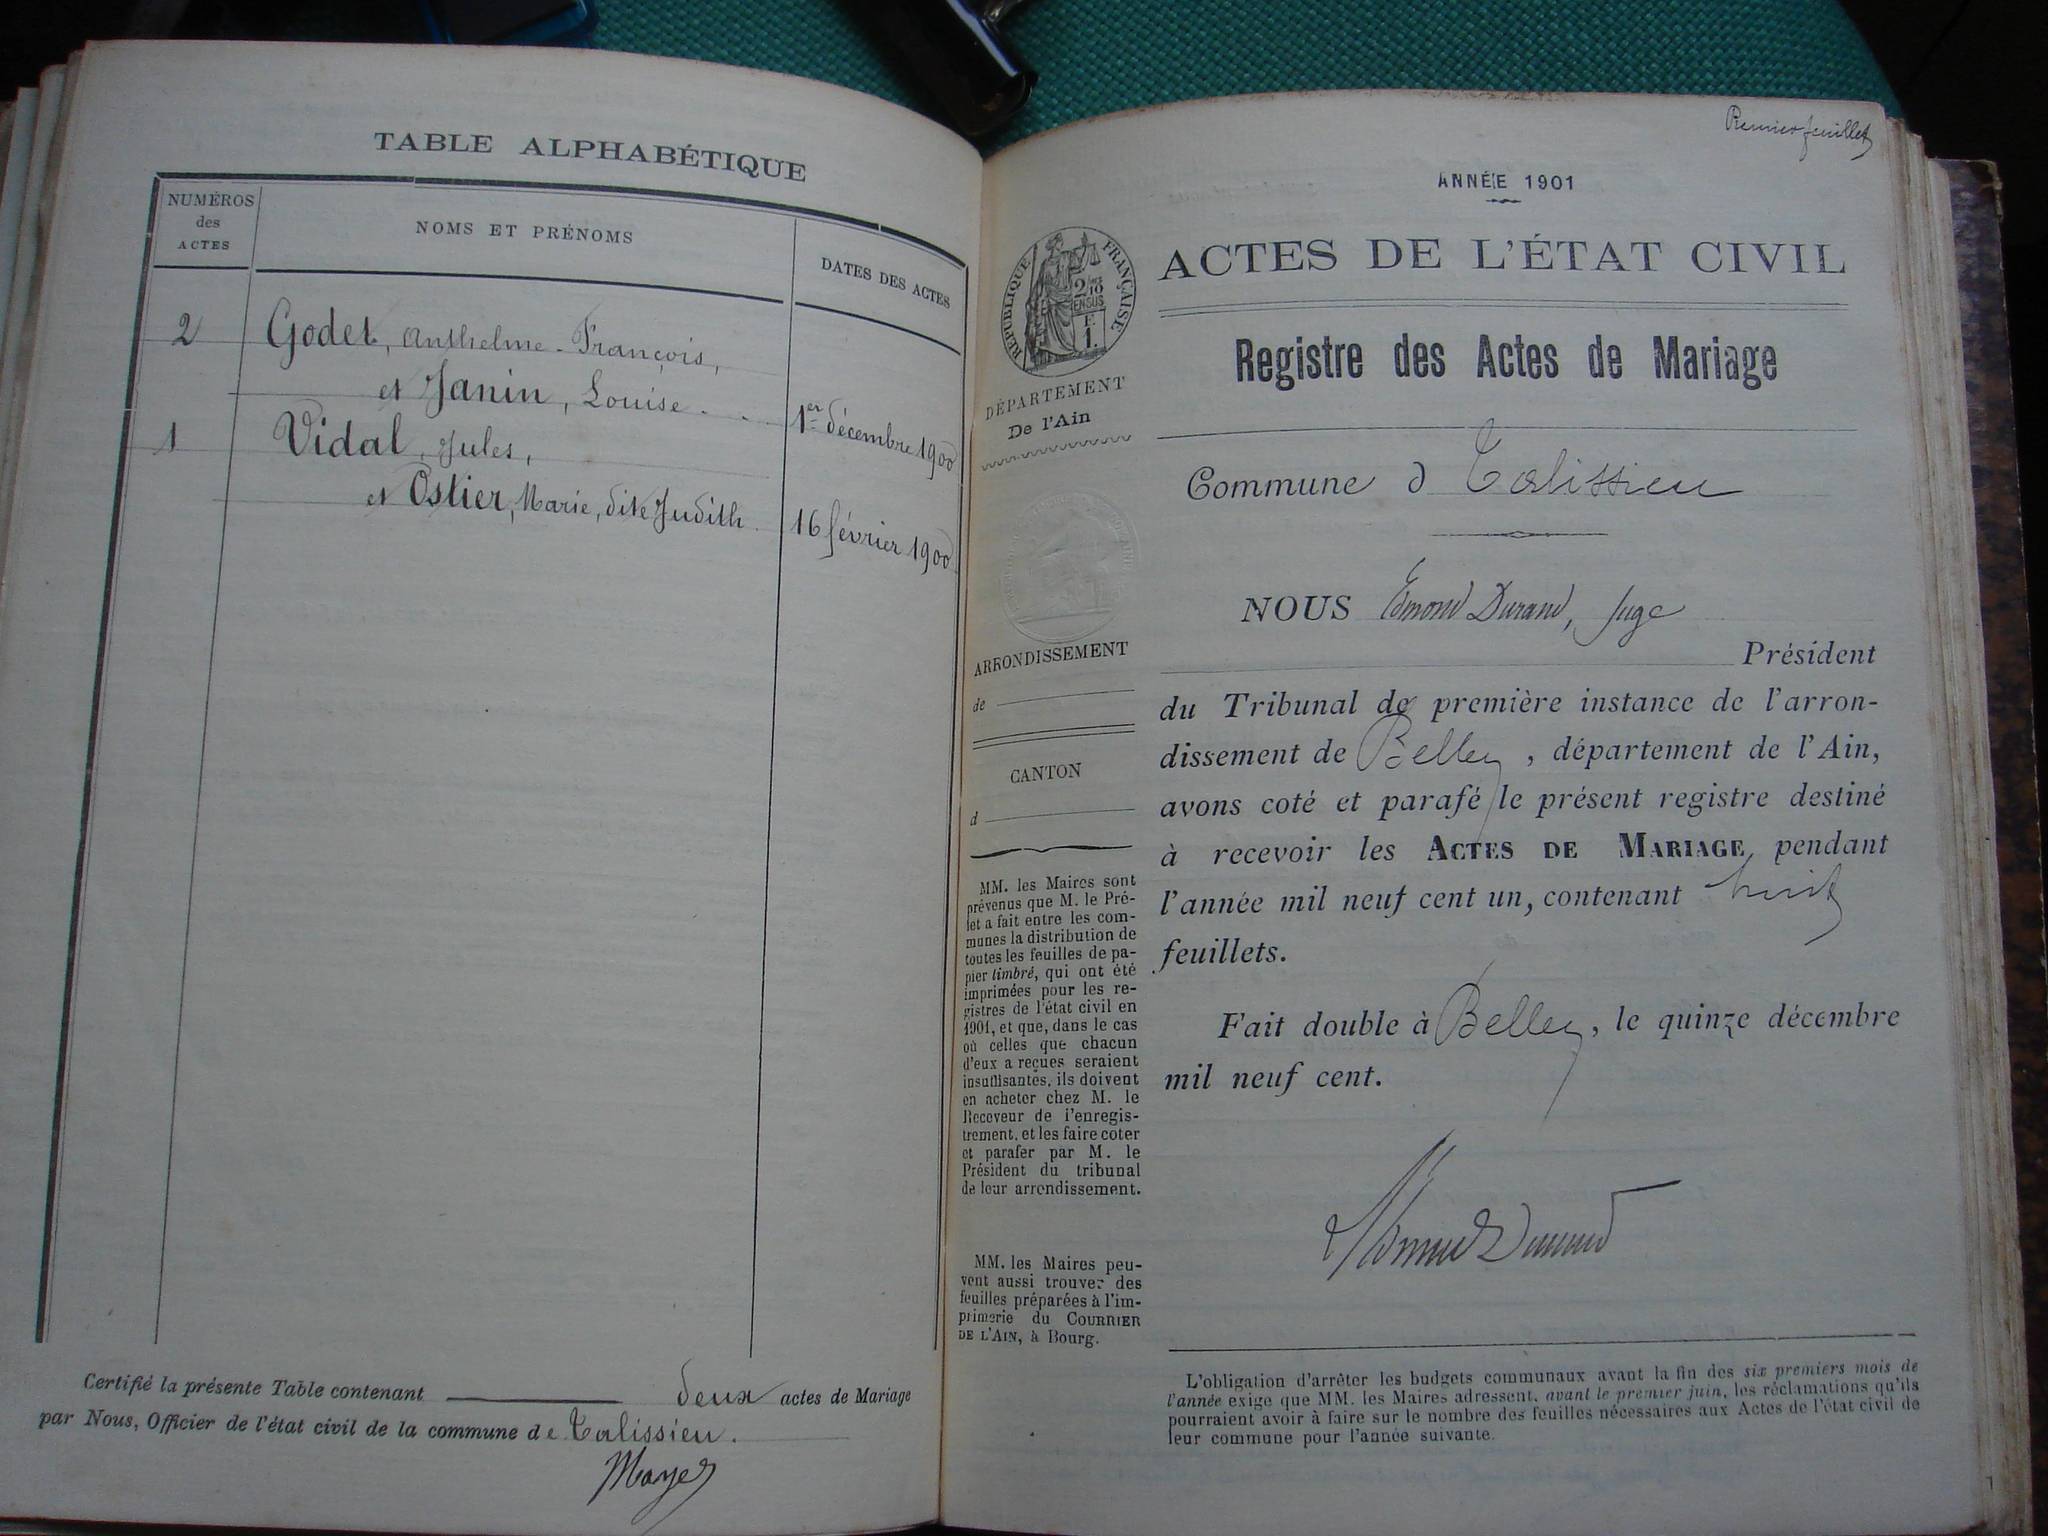 TABLE ALPHABÉTIQUE
NUMÉROS
des
ACTES
NOMS ET PRÉNOMS
DATES DES ACTES
2 Godet, Anthelme-François,
et Janin, Louise
1er décembre 1900
1 Vidal, Jules,
et Ostier, Marie, dite Judith
16 février 1900
Certifié la présente Table contenant deux actes de Mariage
par Nous, Officier de l'état civil de la commune de Talissieu.
Premier feuillet
ANNÉE 1901
RÉPUBLIQUE FRANÇAISE
2/10
EN SUS
E
1.
DÉPARTEMENT
De l'Ain
ARRONDISSEMENT
de
CANTON
d
MM. les Maires sont
prévenus que M. le Pré-
fet a fait entre les com-
munes la distribution de
toutes les feuilles de pa-
pier timbré, qui ont été
imprimées pour les re-
gistres de l'état civil en
1901, et que, dans le cas
où celles que chacun
d'eux a reçues seraient
insuffisantes, ils doivent
en acheter chez M. le
Receveur de l'enregis-
trement, et les faire coter
et parafer par M. le
Président du tribunal
de leur arrondissement.
MM. les Maires peu-
vent aussi trouver des
feuilles préparées à l'im-
primerie du COURRIER
DE L'AIN, à Bourg.
ACTES DE L'ÉTAT CIVIL
Registre des Actes de Mariage
Commune d Talissieu
NOUS Edmond Durand, Juge
Président
du Tribunal de première instance de l'arron-
dissement de Belley, département de l'Ain,
avons coté et parafé le présent registre destiné
à recevoir les ACTES DE MARIAGE pendant
l'année mil neuf cent un, contenant huit
feuillets.
Fait double à Belley, le quinze décembre
mil neuf cent.
Edmond Durand
L'obligation d'arrêter les budgets communaux avant la fin des six premiers mois de
l'année exige que MM. les Maires adressent, avant le premier juin, les réclamations qu'ils
pourraient avoir à faire sur le nombre des feuilles nécessaires aux Actes de l'état civil de
leur commune pour l'année suivante.